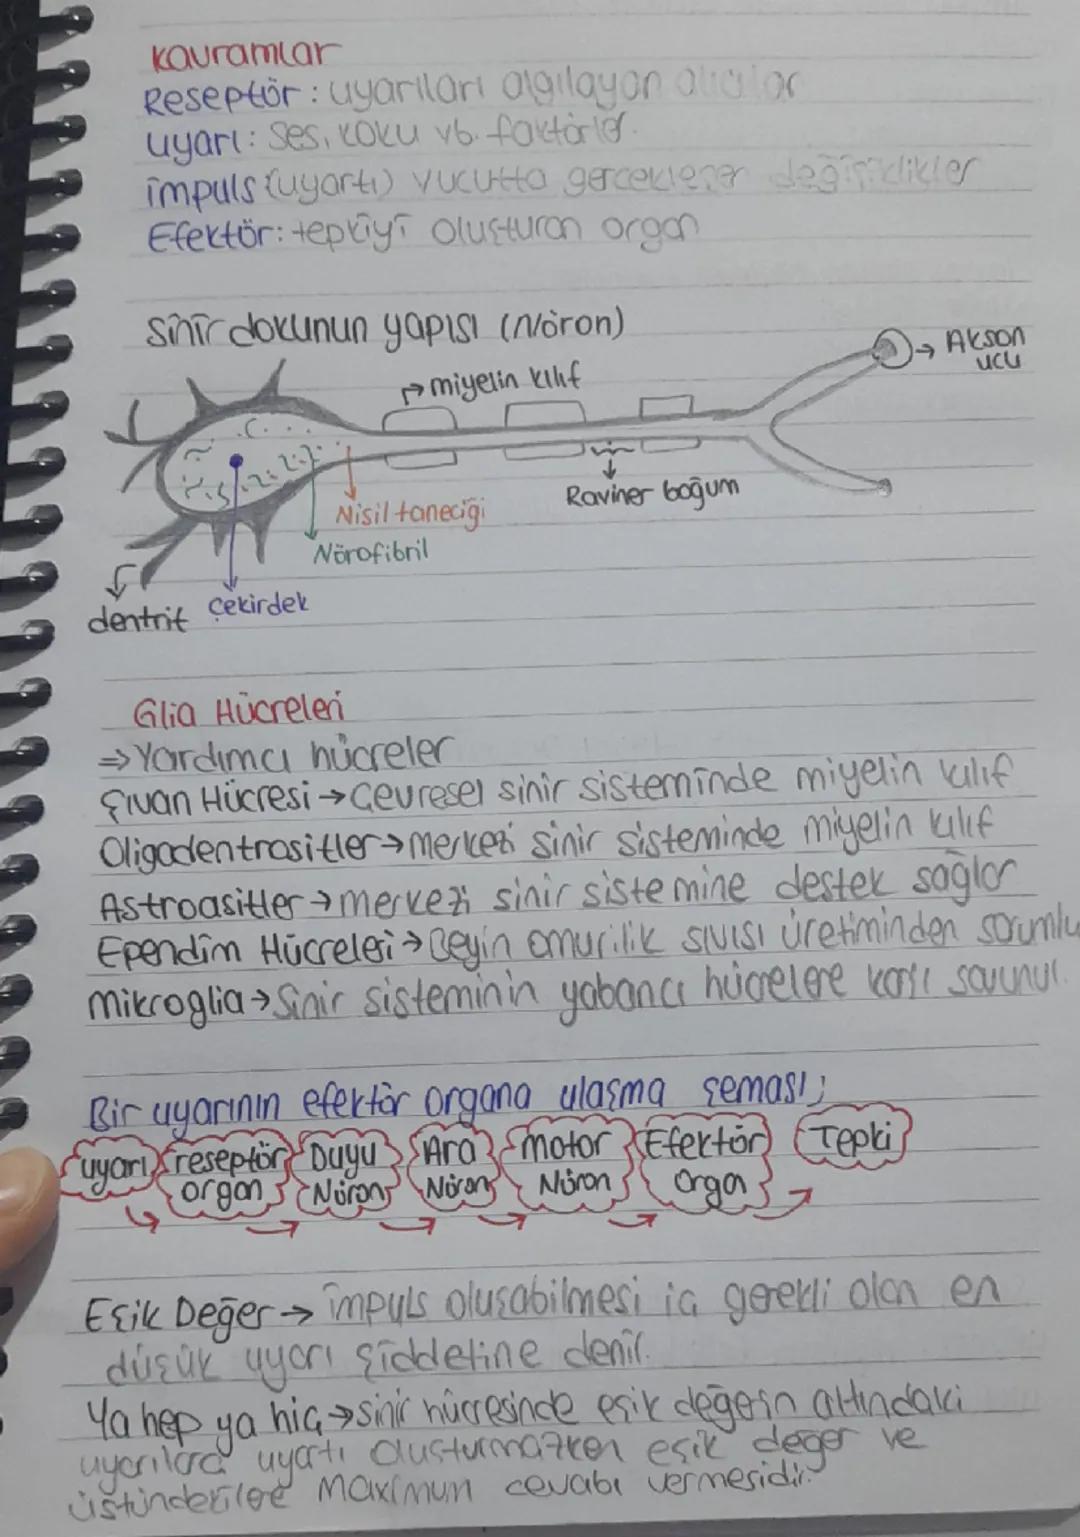 kavramlar
Reseptör: uyarıları algılayan alıcılar
uyarı: Ses, koku vb. faktörler.
impuls (uyartı) vucutta gerçekleşen değişiklikler
Efektör: tepkiyi oluşturan organ
Sinir dokunun yapısı (Nöron)
Akson ucu
miyelin kılıf
Raviner boğum
Nisil taneciği
Nörofibril
dentrit
Çekirdek
Glia Hücreleri
⇒ Yardımcı hücreler
Şıvan Hücresi → Çevresel sinir sisteminde miyelin kılıf
Oligodentrositler → merkezi sinir sisteminde miyelin kılıf
Astroasitler → merkezi sinir sistemine destek sağlar
Ependim Hücreleri → Beyin omurilik sıvısı üretiminden sorumlu
mikroglia → Sinir sisteminin yabancı hücrelere karşı savunur.
Bir uyarının efektör organa ulaşma şeması;
uyarı reseptör organ Duyu Nöron Ara Nöron motor Nöron Efektör Orga Tepki
Eşik Değer → impuls oluşabilmesi iç gerekli olan en
düşük uyarı şiddetine denir.
Ya hep ya hiç → sinir hücresinde eşik değerin altındaki
uyarılara uyartı oluşturmazken eşik değer ve
üstündekilere maximun cevabı vermesidir.